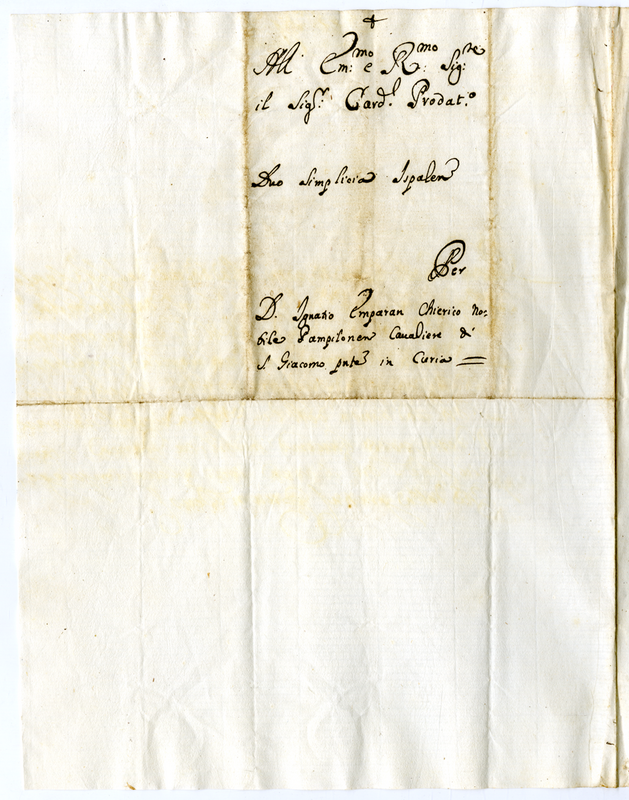 +
All Em:mo e R:mo Sig:re
il Sig.r Card.l Prodat.o
Duo simplicia Ispalen
Per
D. Ignatio Emparan Chierico No:
bile Pampilonen Cavaliere di
S. Giacomo pnte in Curia =